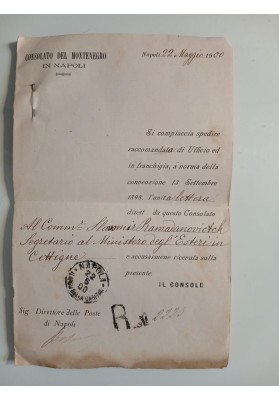 CONSOLATO DEL MONTENEGRO
IN NAPOLI
Napoli, 22 Maggio 1900
Si compiaccia spedire
raccomandata di Ufficio ed
in franchigia, a norma della
convenzione 13 Settembre
189, l'unita lettera
dirett da questo Consolato
Al Comm.
Segretario al Ministero degl' Esteri in
Cettigne
e accusarmene ricevuta sulla
presente.
IL CONSOLE
NAPOLI
22
5
00
Sig. Direttore delle Poste
di Napoli
R